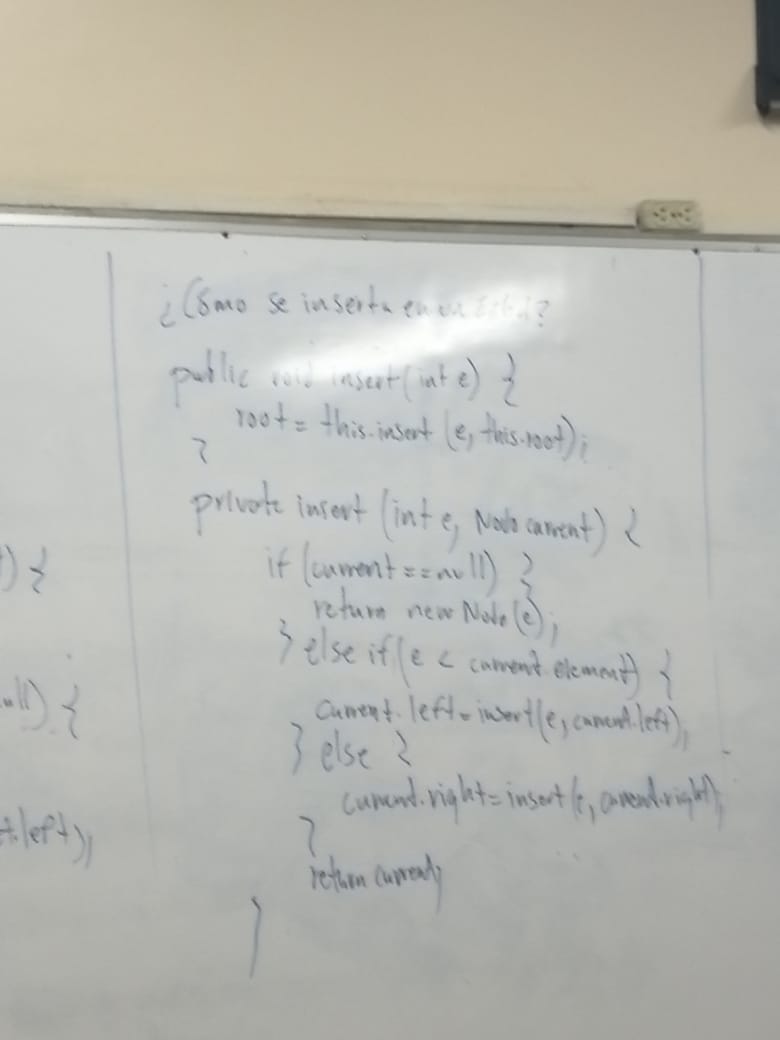 ¿Cómo se inserta en un árbol?
public void insert(int e) {
root = this.insert (e, this.root);
}
private insert (int e, Nodo current) {
if (current == null) {
return new Nodo(e);
} else if (e < current.element) {
current.left = insert(e, current.left);
} else {
current.right = insert(e, current.right);
}
return current;
}
) {
null) {
t.left);